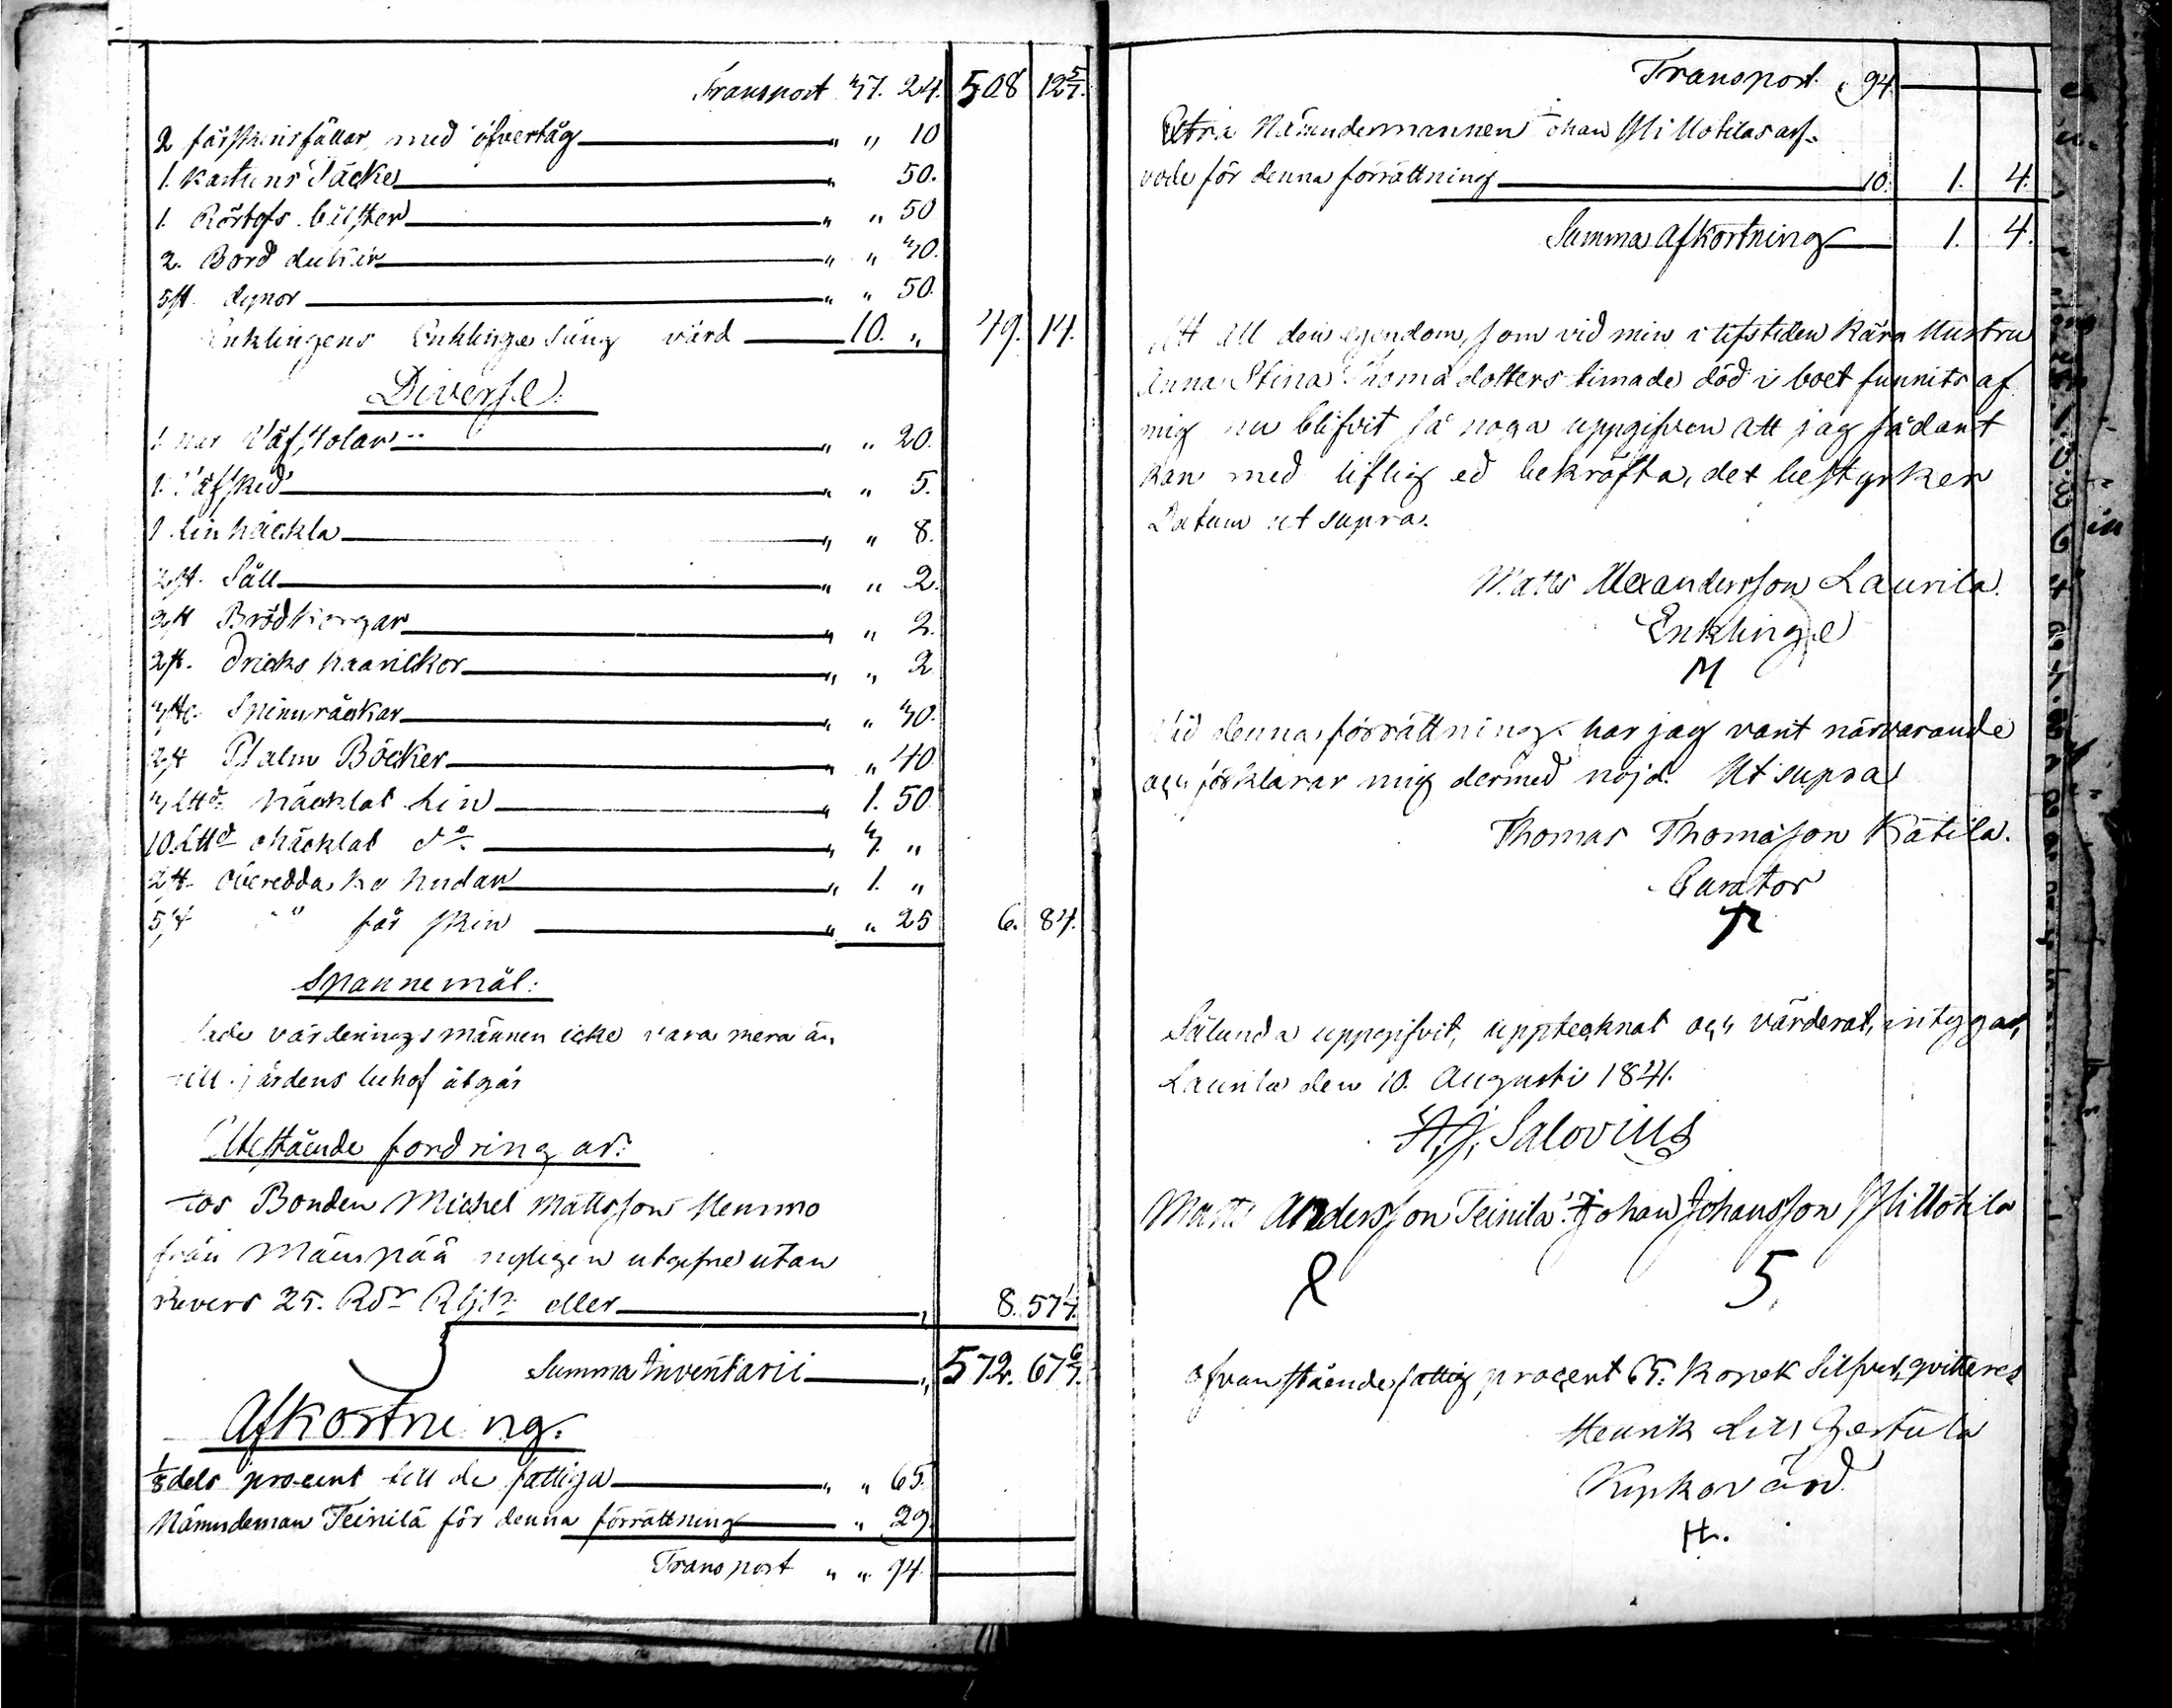 Transport 37. 24. 508 12 5/7.
2 fårskinsfällar med öfvertåg " " 10
1. Kartuns Täcke " 50.
1. Rörtofs bülster " " 50
2. Bord dukar " " 30.
5 st. dynor " " 50.
Enklingens Enklinge säng värd 10. " 49. 14.
Diverse.
1. par Väfstolar " " 20.
1. Väfsked " " 5.
1 Linhäckla " " 8.
2 st. Såll " " 2.
2 st Brödkorgar " " 2.
2 st. Dricks " " 2
3 st. Spinnråckar " " 30.
2 st Psalm Böcker " " 40
3 L℔d. häcklat Lin " 1. 50.
10. L℔d ohäcklat do " 3. "
2 st. Oberedda ko hudar " 1. "
5 st " får skin " " 25 6. 84.
Spannemål:
värderingsmännen icke vara mera än
till gårdens behof åtgår
Utestående fordringar:
hos Bonden Michel Mattsson Hemmo
från Mäenpää nyligen utgifne utan
Revers 25. Rdr Rgs: eller " 8. 57 1/7.
Summa Inventarii " 572. 67 6/7.
Afkortning.
1/8 dels procent till de fattiga " " 65.
Nämndeman Teinilä för denna förrättning " 29.
Transport " " 94.
Transport " 94
Extra Nämndemannen Johan Yli Uotilas arf-
vode för denna förrättning 10. 1. 4.
Summa Afkortning 1. 4.
Att all den egendom, som vid min i lifstiden kära Hustru
Anna Stina Thomadotters timade död i boet funnits af
mig nu blifvit så noga uppgifven att jag sådant
kan med liflig ed bekräfta, det bestyrker
Datum ut supra.
Matts Alexandersson Laurila.
Enklinge
M
Vid denna förrättning har jag varit närvarande
och förklarar mig dermed nöjd. Ut supra
Thomas Thomasson Kätila.
Curator
Sålunda uppgifvit, upptecknat och värderat, intygar,
Laurila den 10. Augusti 1841.
A. J. Salovius
Matts Andersson Teinilä. Johan Johansson Yli Uotila
Ofvanstående fattig procent 65. Kopek Silfver, qvitteres
Henrik Lill
Kyrkovärd.
H.